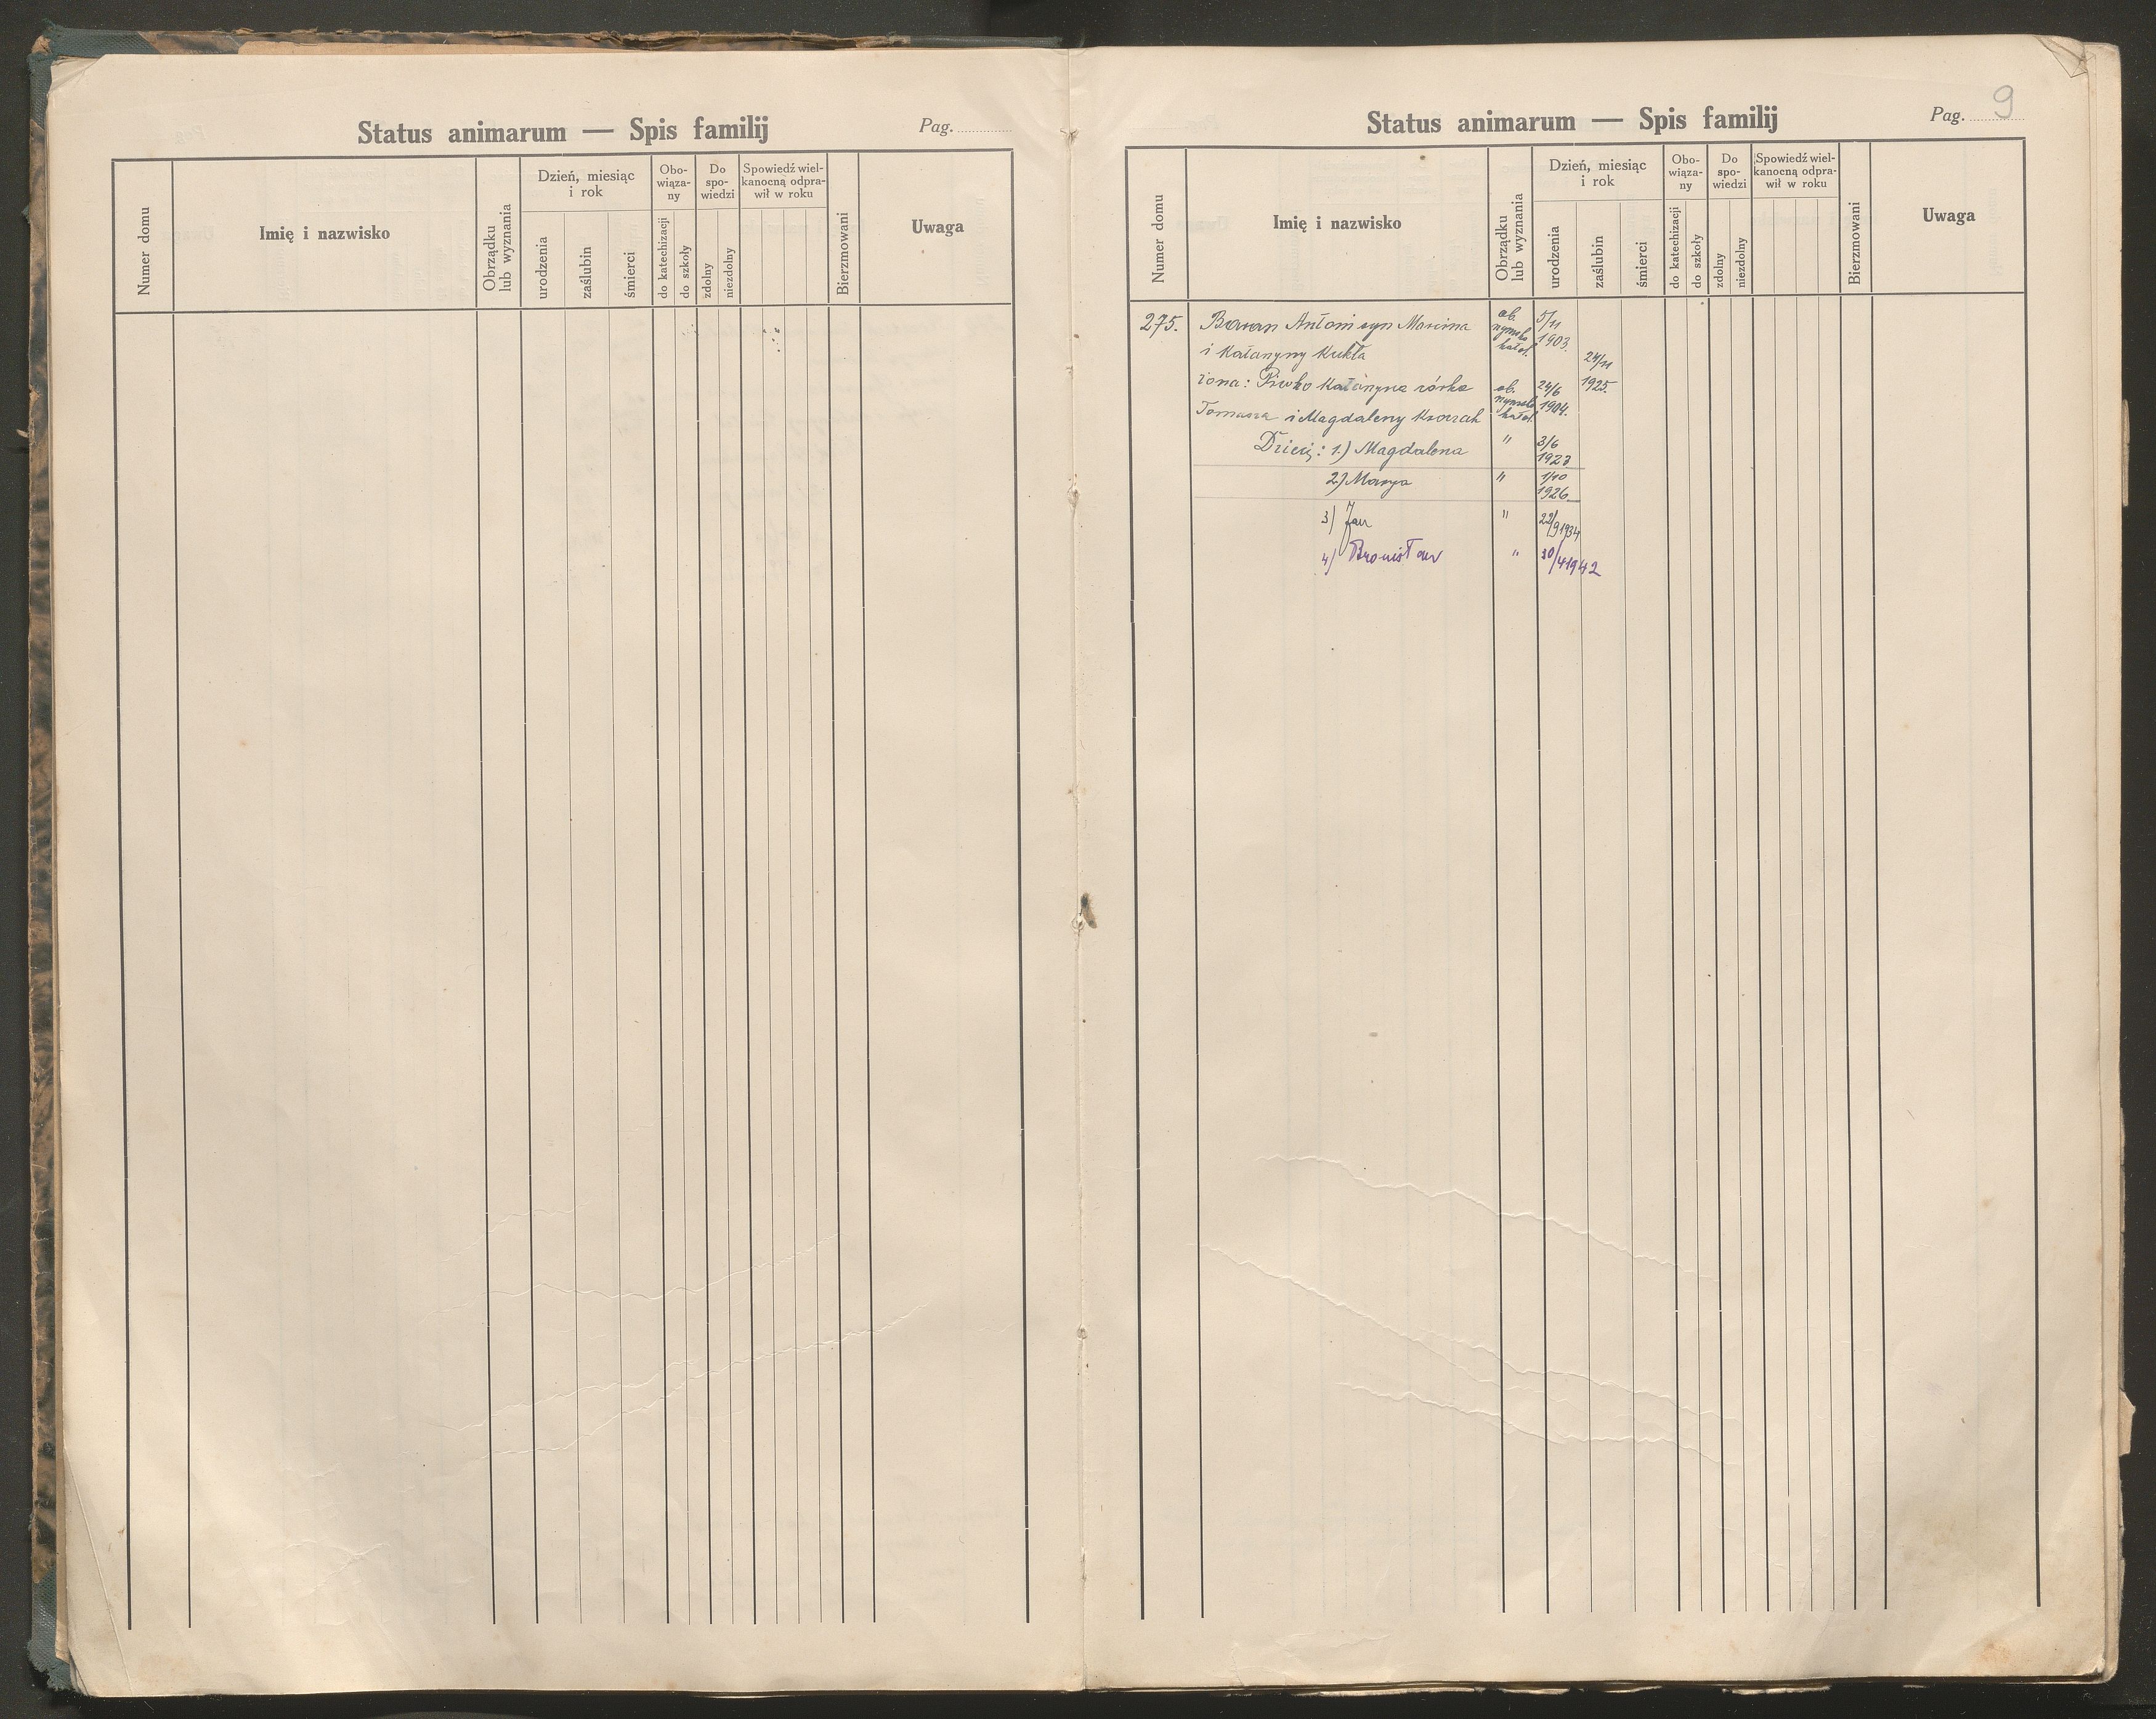 Status animarum — Spis familij
Pag.
Numer domu
Imię i nazwisko
Obrządku lub wyznania
Dzień, miesiąc i rok
urodzenia
zaślubin
śmierci
Obo-
wiąza-
ny
do katechizacji
do szkoły
Do
spo-
wiedzi
zdolny
niezdolny
Spowiedź wiel-
kanocną odpra-
wił w roku
Bierzmowani
Uwaga
Status animarum — Spis familij
Pag. 9
Numer domu
Imię i nazwisko
Obrządku lub wyznania
Dzień, miesiąc i rok
urodzenia
zaślubin
śmierci
Obo-
wiąza-
ny
do katechizacji
do szkoły
Do
spo-
wiedzi
zdolny
niezdolny
Spowiedź wiel-
kanocną odpra-
wił w roku
Bierzmowani
Uwaga
275. Baran Antoni syn Marcina ob. rzymsko katol. 5/11 1903.
i Katarzyny Kukla 24/11 1925.
żona: Piwko Katarzyna córka ob. rzymsko katol. 24/6 1904.
Tomasza i Magdaleny
Dzieci: 1.) Magdalena " 3/6 1923
2) Marya " 1/10 1926
3) Jan " 22/9 1934
4) Bronisław " 30/4 1942